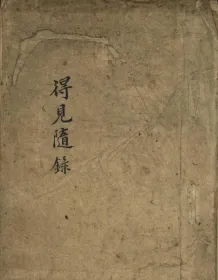 得見隨錄